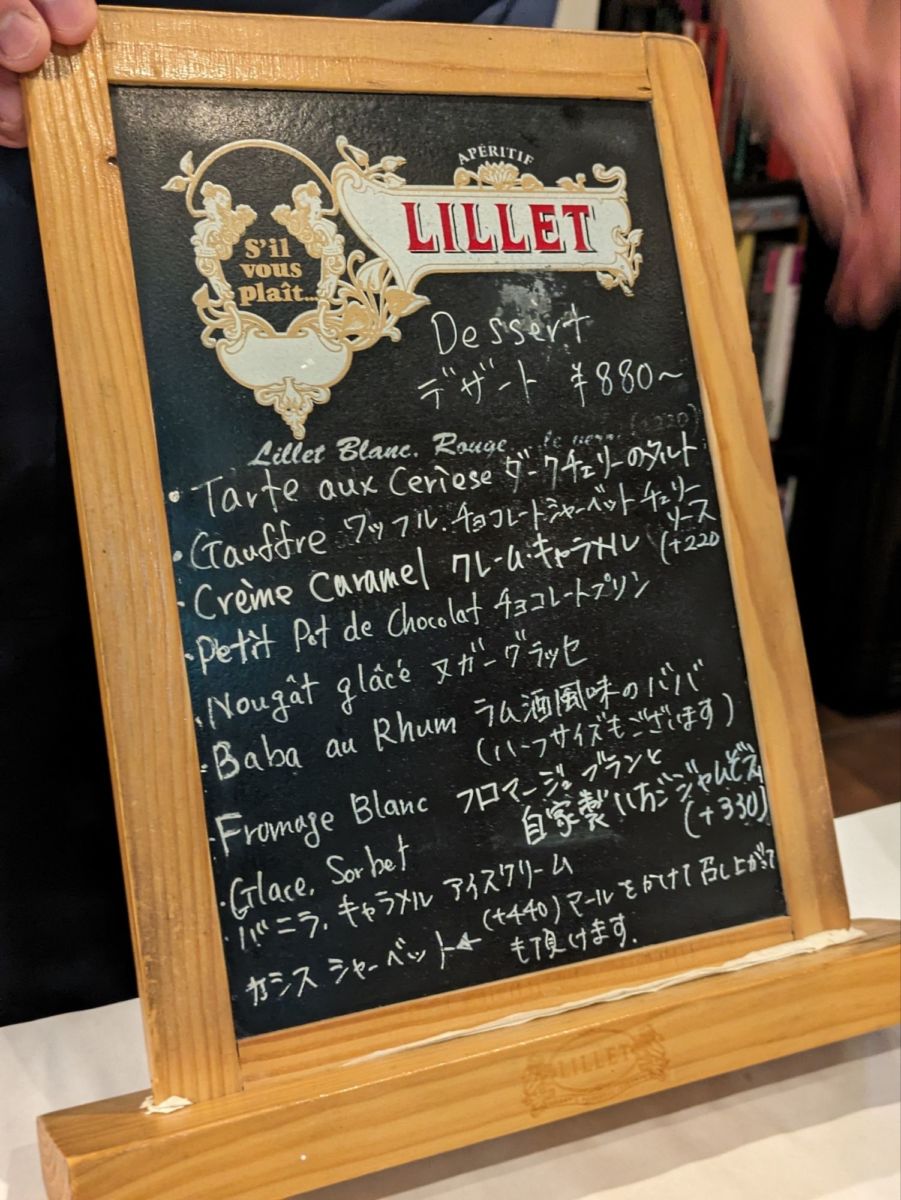 APÉRITIF
LILLET
S'il
vous
plaît...
Dessert
デザート ¥880～
Lillet Blanc, Rouge
(+220)
・Tarte aux Ceriese ダークチェリーのタルト
・Gauffre ワッフル.チョコレートシャーベットチェリー
ソース
・Crème caramel クレーム・キャラメル (+220
・Petit Pot de Chocolat チョコレートプリン
・Nougât glâcé ヌガーグラッセ
・Baba au Rhum ラム酒風味のババ
(ハーフサイズもございます)
・Fromage Blanc フロマージュブランと
自家製いちごジャム
(+330)
・Glace, Sorbet
・バニラ、キャラメル アイスクリーム
カシス シャーベット← (+440)マールをかけて召し上がって
も頂けます.
LILLET